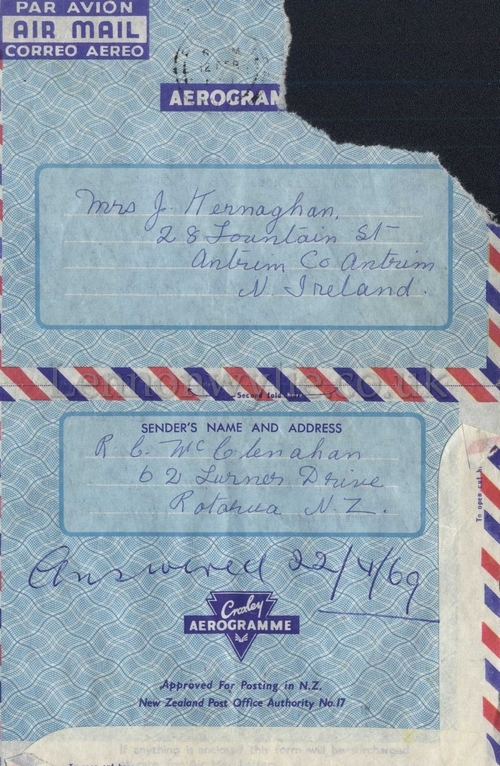 PAR AVION
AIR MAIL
CORREO AEREO
AEROGRAM
Mrs J. Kernaghan,
28 Fountain St
Antrim Co Antrim
N Ireland.
Second fold here
SENDER'S NAME AND ADDRESS
R C. McClenahan
62 Turner Drive
Rotorua N.Z.
To open cut h
Answered 22/4/69
Croxley
AEROGRAMME
Approved For Posting in N.Z.
New Zealand Post Office Authority No.17
If anything is enclosed this form will be surcharged